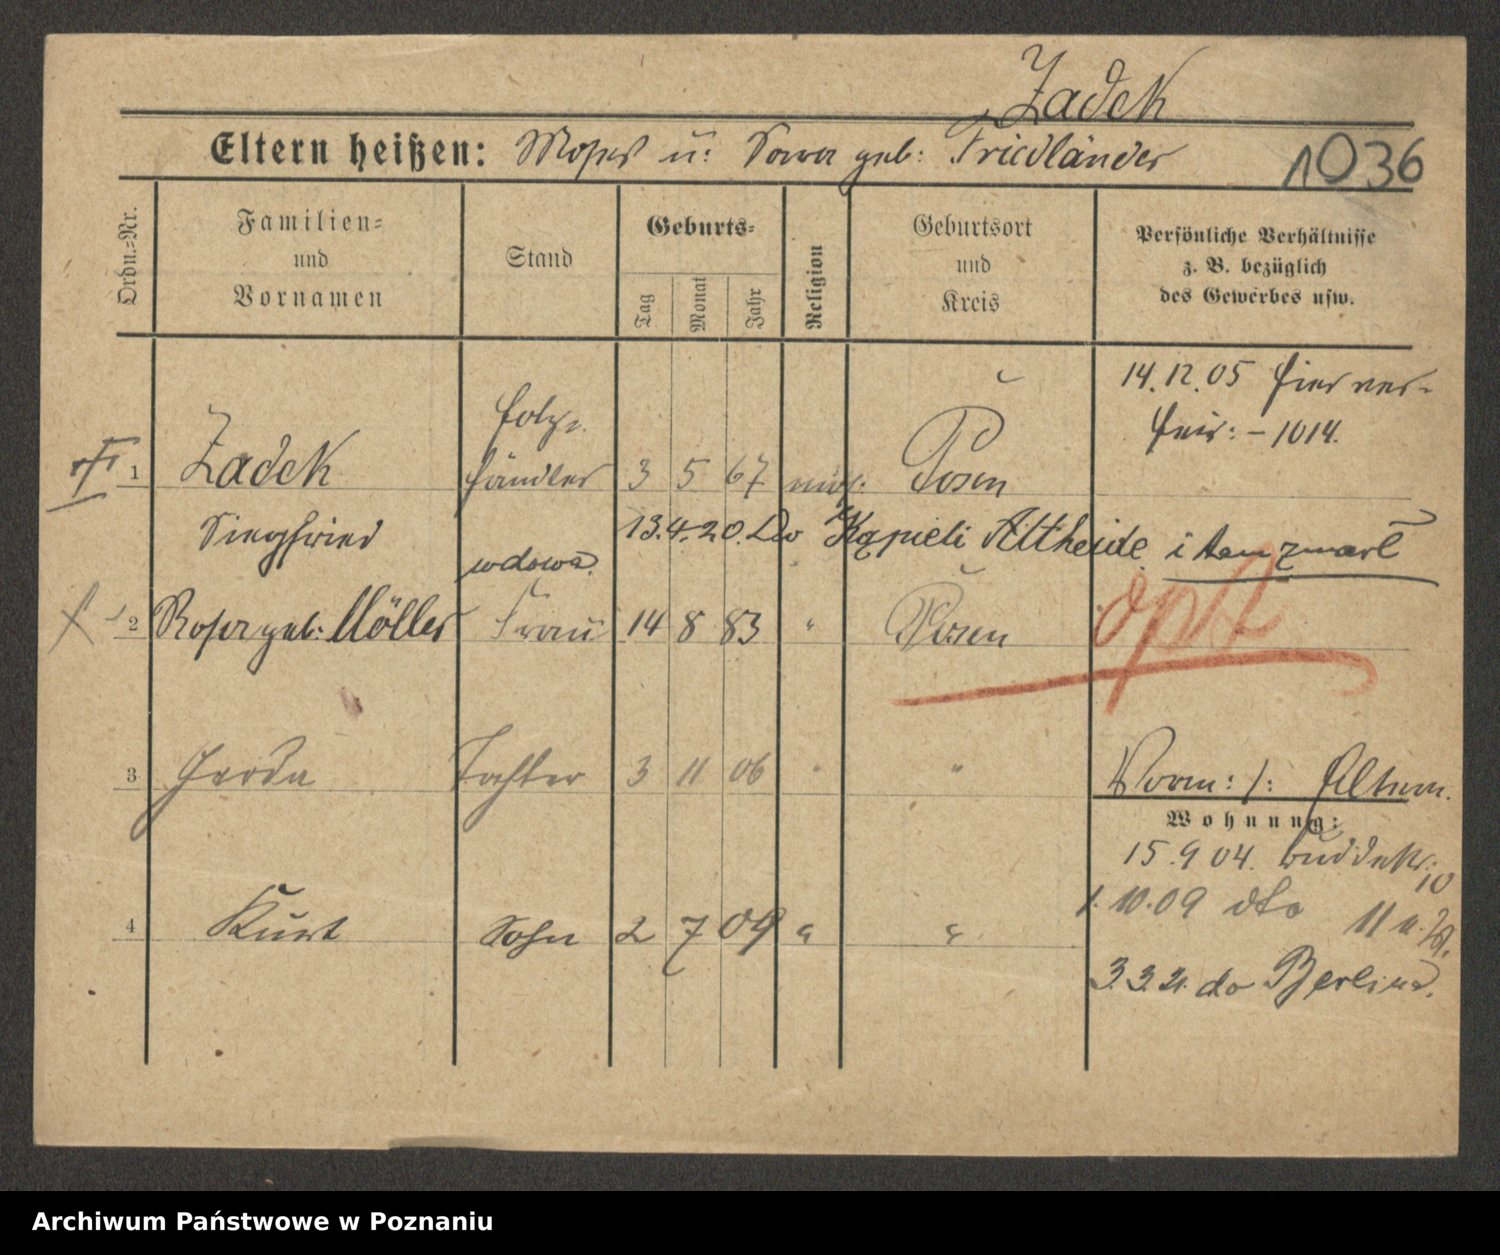 Zadek
Eltern heißen: Moses u: Sara geb: Friedländer
1036
Ordn.=Nr.
Familien=
und
Vornamen
Stand
Geburts=
Tag
Monat
Jahr
Religion
Geburtsort
und
Kreis
Persönliche Verhältnisse
z. B. bezüglich
des Gewerbes usw.
14.12.05 hier ver-
heir: - 1014.
Holz-
1 Zadek händler 3 5 67 mos: Posen
Siegfried
13.4.20. Do Kąpieli Altheide i tam zmarł
wdowa
2 Rosa geb: Möller Frau 14 8 83 " Posen
opt
3 Gerda Tochter 3 11 06 " "
Wohnung:
15.9 04.
10
4 Kurt Sohn 2 7 09 " "
1.10.09 dto 11 a.
3.3.21. do Berlina.
Archiwum Państwowe w Poznaniu